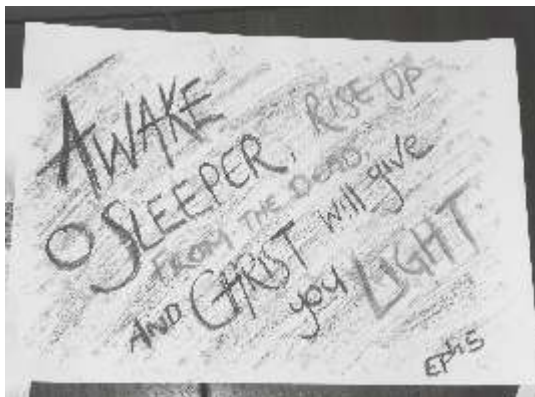 AWAKE
O SLEEPER, RISE UP
FROM THE DEAD,
AND CHRIST will give
you LIGHT.
Eph 5